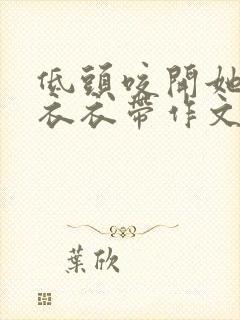 低頭咬開她
衣衣帶作文
葉欣